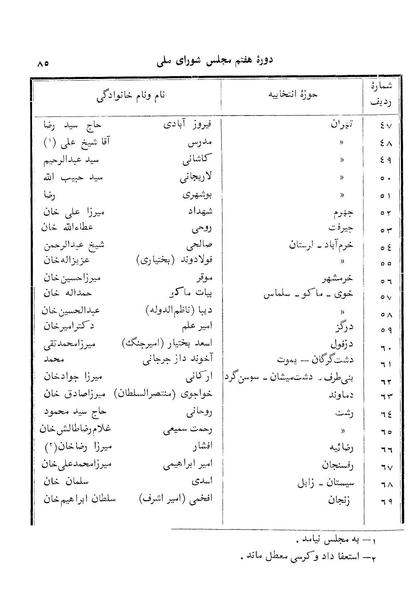 دورهٔ هفتم مجلس شورای ملی ۸۵
شمارهٔ ردیف حوزهٔ انتخابیه نام ونام خانوادگی
٤٧ تهران فیروز آبادی حاج سید رضا
٤٨ » مدرس آقا شیخ علی (۱)
٤٩ » کاشانی سید عبدالرحیم
٥٠ » لاریجانی سید حبیب الله
٥١ » بوشهری رضا
٥٢ جهرم شهداد میرزا علی خان
٥٣ جیرفت روحی عطاءالله خان
٥٤ خرم‌آباد - لرستان صالحی شیخ عبدالرحمن
٥٥ » » فولادوند (بختیاری) عزیزاله خان
٥٦ خرمشهر موقر میرزاحسین خان
٥٧ خوی - ماکو - سلماس بیات ماکو حمداله خان
٥٨ » دیبا (ناظم‌الدوله) عبدالحسین خان
٥٩ درگز امیر علم دکترامیرخان
٦٠ دزفول اسعد بختیار (امیرجنگ) میرزامحمدتقی
٦١ دشت‌گرگان - یموت آخوند داز جرجانی محمد
٦٢ بنی‌طرف - دشت‌میشان - سوسن‌گرد ارکانی میرزا جوادخان
٦٣ دماوند خواجوی (منتصرالسلطان) میرزاصادق خان
٦٤ رشت روحانی حاج سید محمود
٦٥ » رحمت سمیعی غلام‌رضاطالش‌خان
٦٦ رضائیه افشار میرزا رضاخان (۲)
٦٧ رفسنجان امیر ابراهیمی میرزامحمدعلی‌خان
٦٨ سیستان - زابل اسدی سلمان خان
٦٩ زنجان افخمی (امیر اشرف) سلطان ابراهیم‌خان
۱- به مجلس نیامد .
۲- استعفا داد و کرسی معطل ماند .